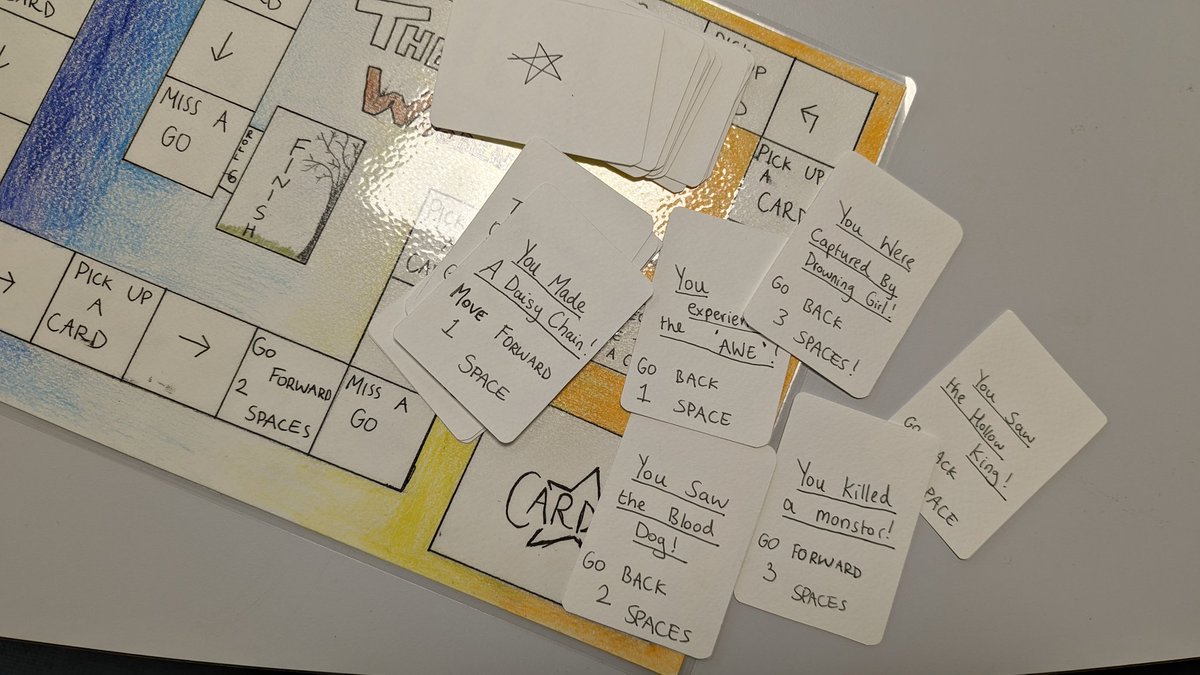 CARD
MISS A
GO
ROLL 6
FINISH
THE
PICK UP
A
CARD
PICK UP
A
CARD
→
GO
FORWARD
2
SPACES
MISS A
GO
CARD
You Made
A Daisy Chain!
MOVE FORWARD
1
SPACE
You
the "AWE"!
GO BACK
1 SPACE
You Were
Captured By
Drowning Girl!
GO BACK
3 SPACES!
You Saw
the Hollow
King!
You Saw
the Blood
Dog!
GO BACK
2 SPACES
You Killed
a monstor!
GO FORWARD
3
SPACES